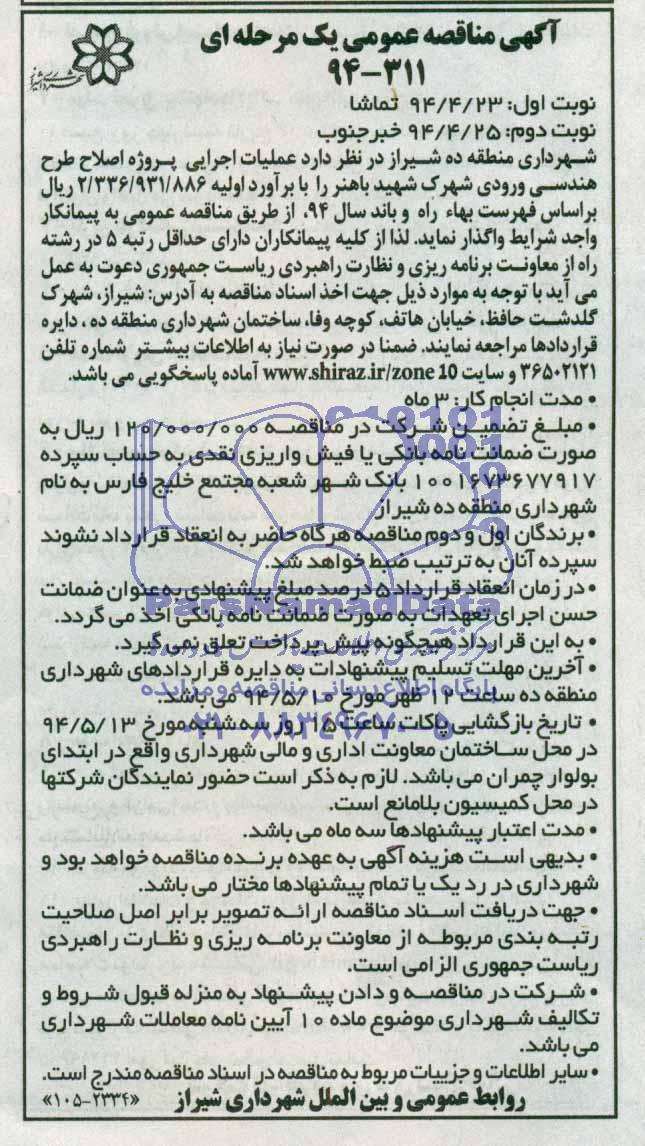 آگهی مناقصه عمومی یک مرحله ای
۹۴-۳۱۱
شهرداری شیراز
نوبت اول: ۹۴/۴/۲۳ تماشا
نوبت دوم: ۹۴/۴/۲۵ خبرجنوب
شهرداری منطقه ده شیراز در نظر دارد عملیات اجرایی پروژه اصلاح طرح
هندسی ورودی شهرک شهید باهنر را با برآورد اولیه ۲/۳۳۶/۹۳۱/۸۸۶ ریال
براساس فهرست بهاء راه و باند سال ۹۴، از طریق مناقصه عمومی به پیمانکار
واجد شرایط واگذار نماید. لذا از کلیه پیمانکاران دارای حداقل رتبه ۵ در رشته
راه از معاونت برنامه ریزی و نظارت راهبردی ریاست جمهوری دعوت به عمل
می آید با توجه به موارد ذیل جهت اخذ اسناد مناقصه به آدرس: شیراز، شهرک
گلدشت حافظ، خیابان هاتف، کوچه وفا، ساختمان شهرداری منطقه ده ، دایره
قراردادها مراجعه نمایند. ضمنا در صورت نیاز به اطلاعات بیشتر شماره تلفن
۳۶۵۰۲۱۲۱ و سایت www.shiraz.ir/zone 10 آماده پاسخگویی می باشد.
• مدت انجام کار: ۳ ماه
• مبلغ تضمین شرکت در مناقصه ۱۲۰/۰۰۰/۰۰۰ ریال به
صورت ضمانت نامه بانکی یا فیش واریزی نقدی به حساب سپرده
۱۰۰۱۶۷۳۶۷۷۹۱۷ بانک شهر شعبه مجتمع خلیج فارس به نام
شهرداری منطقه ده شیراز
• برندگان اول و دوم مناقصه هرگاه حاضر به انعقاد قرارداد نشوند
سپرده آنان به ترتیب ضبط خواهد شد.
• در زمان انعقاد قرارداد ۵ درصد مبلغ پیشنهادی به عنوان ضمانت
ParsNamadData
حسن اجرای تعهدات به صورت ضمانت نامه بانکی اخذ می گردد.
• به این قرارداد هیچگونه پیش پرداخت تعلق نمی گیرد.
• آخرین مهلت تسلیم پیشنهادات به دایره قراردادهای شهرداری
پایگاه اطلاع رسانی مناقصه و مزایده
منطقه ده ساعت ۱۲ ظهر مورخ ۹۴/۵/۱۰ می باشد.
• تاریخ بازگشایی پاکات ساعت ۱۵ روز سه شنبه مورخ ۹۴/۵/۱۳
۰۲۱-۸۸۳۴۹۶۷۰-۵
در محل ساختمان معاونت اداری و مالی شهرداری واقع در ابتدای
بولوار چمران می باشد. لازم به ذکر است حضور نمایندگان شرکتها
در محل کمیسیون بلامانع است.
• مدت اعتبار پیشنهادها سه ماه می باشد.
• بدیهی است هزینه آگهی به عهده برنده مناقصه خواهد بود و
شهرداری در رد یک یا تمام پیشنهادها مختار می باشد.
• جهت دریافت اسناد مناقصه ارائه تصویر برابر اصل صلاحیت
رتبه بندی مربوطه از معاونت برنامه ریزی و نظارت راهبردی
ریاست جمهوری الزامی است.
• شرکت در مناقصه و دادن پیشنهاد به منزله قبول شروط و
تکالیف شهرداری موضوع ماده ۱۰ آیین نامه معاملات شهرداری
می باشد.
• سایر اطلاعات و جزییات مربوط به مناقصه در اسناد مناقصه مندرج است.
روابط عمومی و بین الملل شهرداری شیراز «۲۳۳۴-۱۰۵»